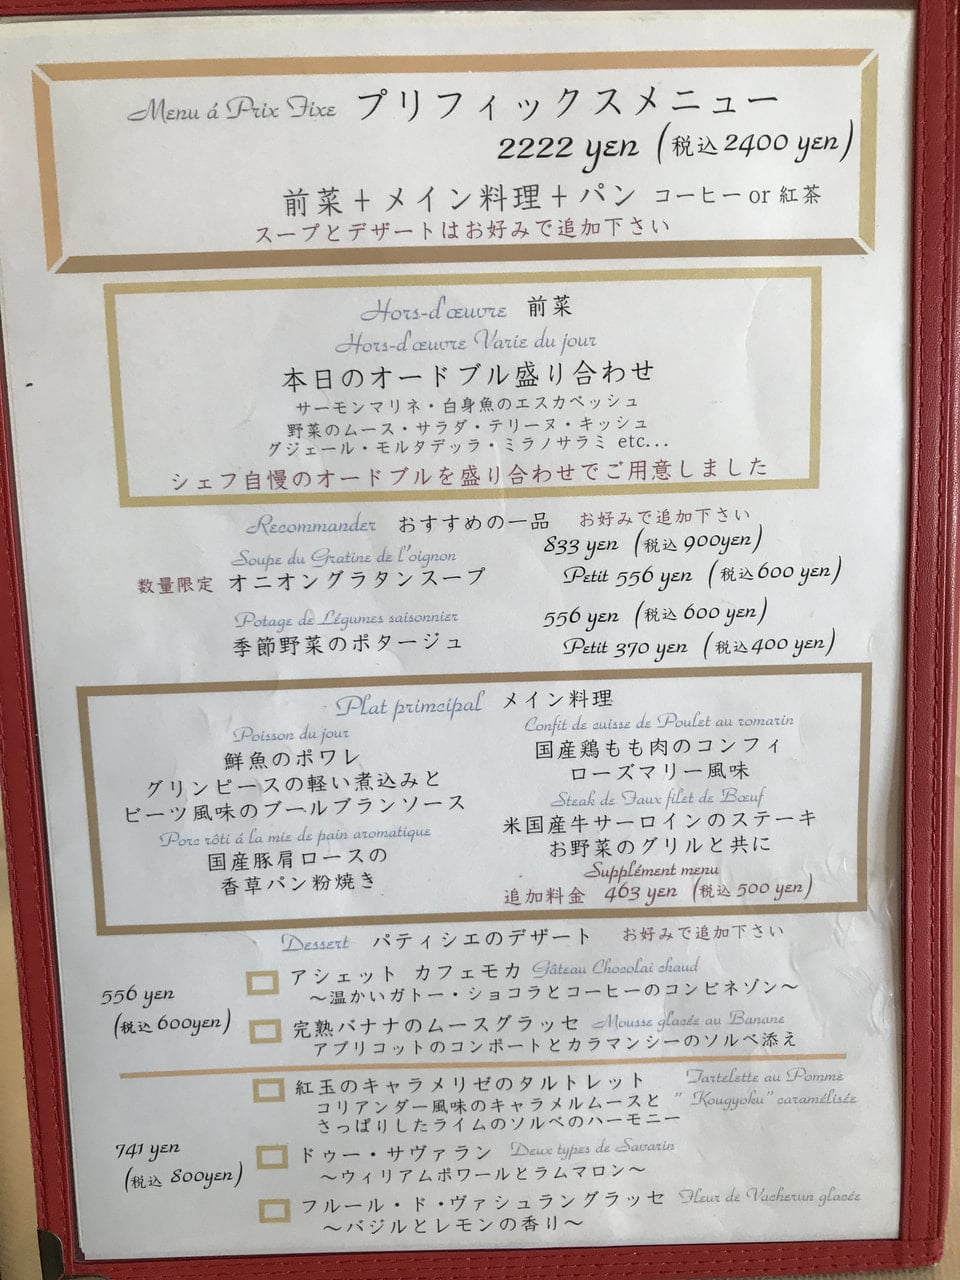 Menu á Prix Fixe プリフィックスメニュー
2222 yen (税込2400 yen)
前菜＋メイン料理＋パン コーヒー or 紅茶
スープとデザートはお好みで追加下さい
Hors-d'œuvre 前菜
Hors-d'œuvre Varie du jour
本日のオードブル盛り合わせ
サーモンマリネ・白身魚のエスカベッシュ
野菜のムース・サラダ・テリーヌ・キッシュ
グジェール・モルタデッラ・ミラノサラミ etc...
シェフ自慢のオードブルを盛り合わせでご用意しました
Recommander おすすめの一品 お好みで追加下さい
Soupe du Gratine de l'oignon 833 yen (税込 900yen)
数量限定 オニオングラタンスープ Petit 556 yen (税込600 yen)
Potage de Légumes saisonnier 556 yen (税込 600 yen)
季節野菜のポタージュ Petit 370 yen (税込400 yen)
Plat primcipal メイン料理
Poisson du jour
鮮魚のポワレ
グリンピースの軽い煮込みと
ビーツ風味のブールブランソース
Porc rôti á la mie de pain aromatique
国産豚肩ロースの
香草パン粉焼き
Confit de cuisse de Poulet au romarin
国産鶏もも肉のコンフィ
ローズマリー風味
Steak de Faux filet de Bœuf
米国産牛サーロインのステーキ
お野菜のグリルと共に
Supplément menu
追加料金 463 yen (税込 500 yen)
Dessert パティシエのデザート お好みで追加下さい
556 yen
(税込 600yen)
アシェット カフェモカ Gâteau Chocolai chaud
～温かいガトー・ショコラとコーヒーのコンビネゾン～
完熟バナナのムースグラッセ Mousse glacée au Banane
アプリコットのコンポートとカラマンシーのソルベ添え
741 yen
(税込 800yen)
紅玉のキャラメリゼのタルトレット Tartelette au Pomme
コリアンダー風味のキャラメルムースと " Kougyoku" caramélisée
さっぱりしたライムのソルベのハーモニー
ドゥー・サヴァラン Deux types de Savarin
～ウィリアムポワールとラムマロン～
フルール・ド・ヴァシュラングラッセ Fleur de Vacherun glacée
～バジルとレモンの香り～